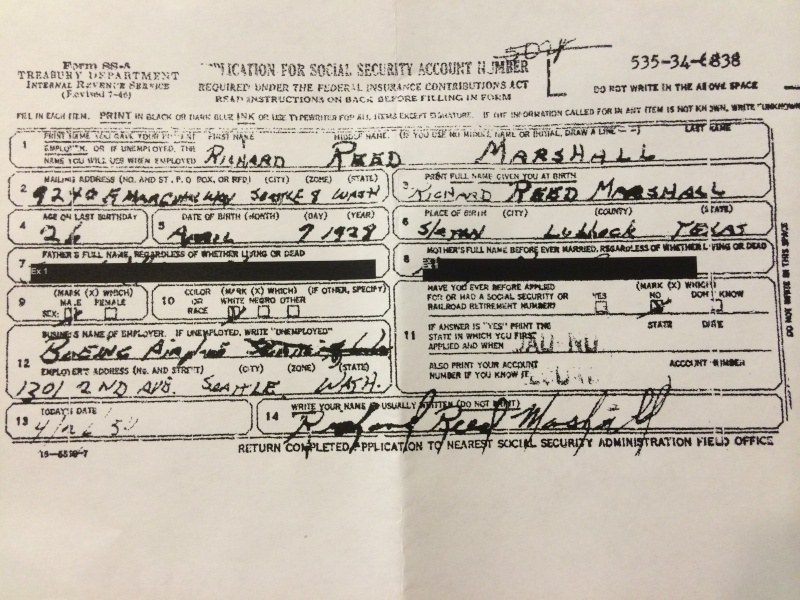 Form SS-5
TREASURY DEPARTMENT
INTERNAL REVENUE SERVICE
(Revised 7-46)
APPLICATION FOR SOCIAL SECURITY ACCOUNT NUMBER
REQUIRED UNDER THE FEDERAL INSURANCE CONTRIBUTIONS ACT
READ INSTRUCTIONS ON BACK BEFORE FILLING IN FORM
DO NOT WRITE IN THE ABOVE SPACE
FILL IN EACH ITEM. PRINT IN BLACK OR DARK BLUE INK OR USE TYPEWRITER FOR ALL ITEMS EXCEPT SIGNATURE. IF THE INFORMATION CALLED FOR IN ANY ITEM IS NOT KNOWN, WRITE "UNKNOWN"
1 PRINT NAME YOU GAVE YOUR PRESENT FIRST NAME MIDDLE NAME. (IF YOU USE NO MIDDLE NAME OR INITIAL, DRAW A LINE —) LAST NAME
EMPLOYER, OR IF UNEMPLOYED, THE
NAME YOU WILL USE WHEN EMPLOYED
RICHARD REED MARSHALL
2 MAILING ADDRESS (NO. AND ST., P. O. BOX, OR RFD) (CITY) (ZONE) (STATE)
9240 E MARGINAL WAY SEATTLE 8 WASH
3 PRINT FULL NAME GIVEN YOU AT BIRTH
RICHARD REED MARSHALL
4 AGE ON LAST BIRTHDAY
26
5 DATE OF BIRTH (MONTH) (DAY) (YEAR)
APRIL 9 1928
6 PLACE OF BIRTH (CITY) (COUNTY) (STATE)
Slaton Lubbock TEXAS
7 FATHER'S FULL NAME, REGARDLESS OF WHETHER LIVING OR DEAD
Ex 1
8 MOTHER'S FULL NAME BEFORE EVER MARRIED, REGARDLESS OF WHETHER LIVING OR DEAD
9 (MARK (X) WHICH)
MALE FEMALE
SEX: X
10 COLOR OR RACE (MARK (X) WHICH) (IF OTHER, SPECIFY)
WHITE NEGRO OTHER
X
HAVE YOU EVER BEFORE APPLIED
FOR OR HAD A SOCIAL SECURITY OR
RAILROAD RETIREMENT NUMBER?
(MARK (X) WHICH)
YES NO DON'T KNOW
X
11 IF ANSWER IS "YES" PRINT THE
STATE IN WHICH YOU FIRST
APPLIED AND WHEN
STATE DATE
ALSO PRINT YOUR ACCOUNT
NUMBER IF YOU KNOW IT
ACCOUNT NUMBER
12 BUSINESS NAME OF EMPLOYER. IF UNEMPLOYED, WRITE "UNEMPLOYED"
BOEING Airplane
EMPLOYER'S ADDRESS (NO. AND STREET) (CITY) (ZONE) (STATE)
1301 2ND AVE. SEATTLE WASH.
13 TODAY'S DATE
14 WRITE YOUR NAME AS USUALLY WRITTEN (DO NOT PRINT)
Richard Reed Marshall
RETURN COMPLETED APPLICATION TO NEAREST SOCIAL SECURITY ADMINISTRATION FIELD OFFICE
DO NOT WRITE IN THIS SPACE